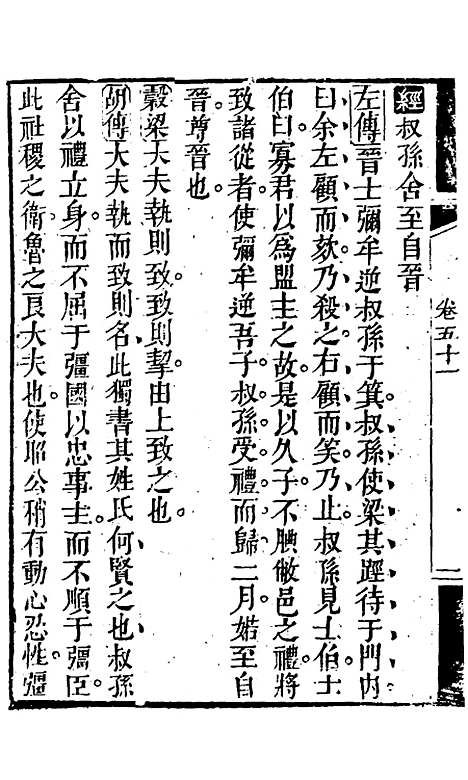 卷五十一
經叔孫舍至自晉
左傳晉士彌牟逆叔孫于箕叔孫使梁其踁待于門內
曰余左顧而欬乃殺之右顧而笑乃止叔孫見士伯士
伯曰寡君以爲盟主之故是以久子不腆敝邑之禮將
致諸從者使彌牟逆吾子叔孫受禮而歸二月婼至自
晉尊晉也
穀梁大夫執則致致則挈由上致之也
胡傳大夫執而致則名此獨書其姓氏何賢之也叔孫
舍以禮立身而不屈于彊國以忠事主而不順于彊臣
此社稷之衛魯之良大夫也使昭公稍有動心忍性彊